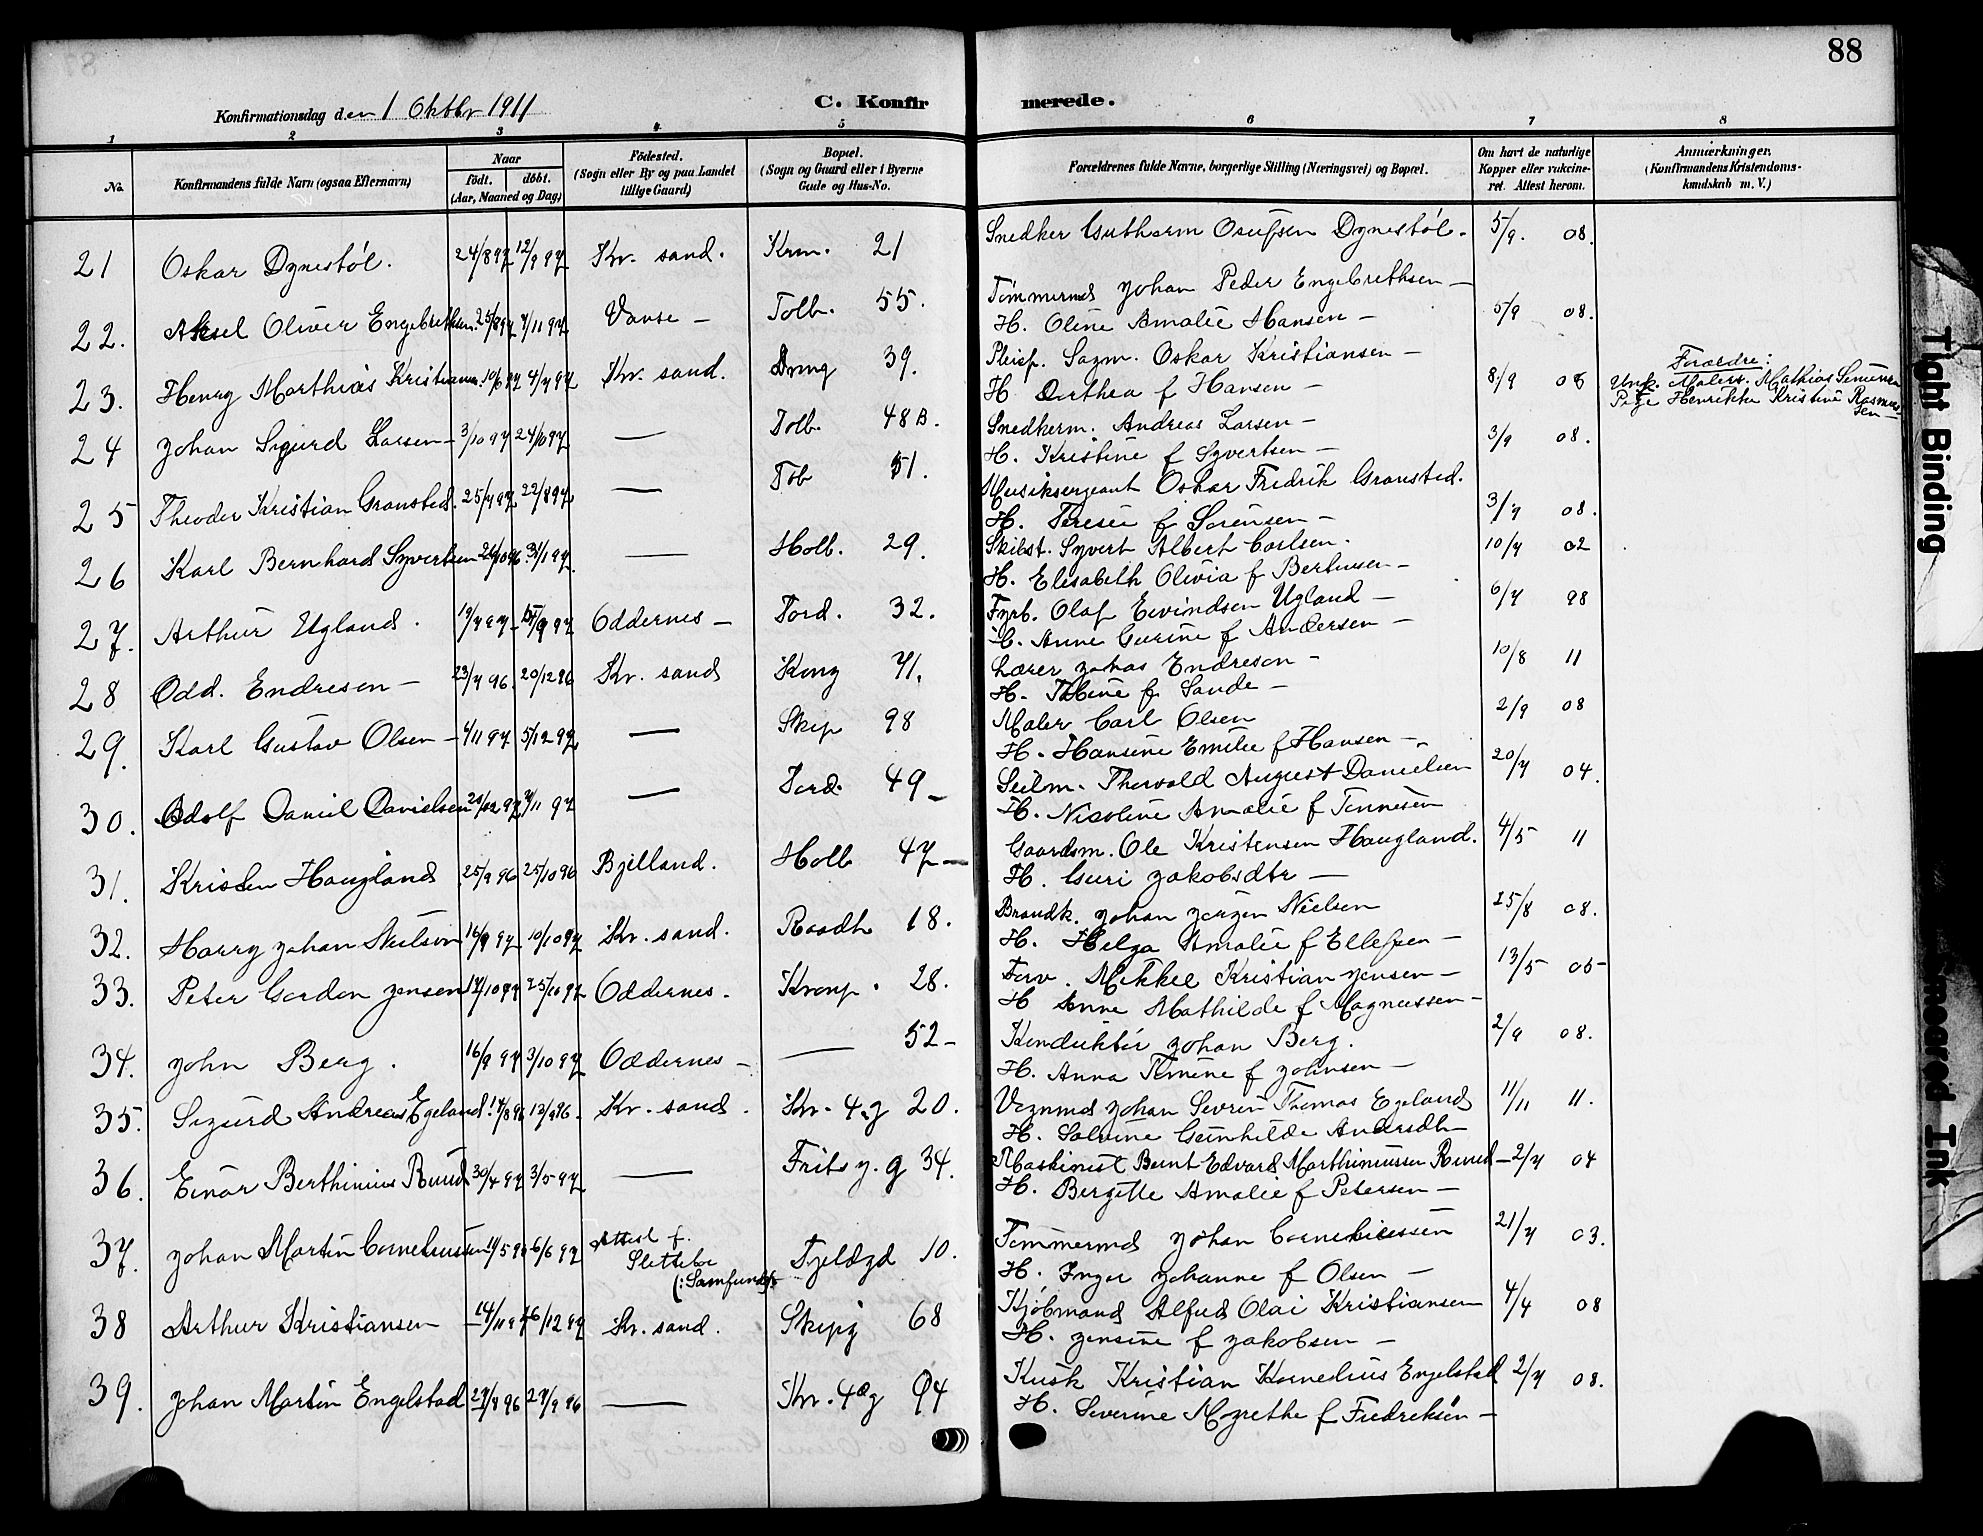 88
Konfirmationsdag den 1 Oktbr 1911
C. Konfirmerede.
1 2 3 4 5 6 7 8
No.
Konfirmandens fulde Navn (ogsaa Efternavn)
Naar
født. døbt.
(Aar, Maaned og Dag)
Födested.
(Sogn eller By og paa Landet
tillige Gaard)
Bopæl.
(Sogn og Gaard eller i Byerne
Gade og Hus-No.
Forældrenes fulde Navne, borgerlige Stilling (Næringsvei) og Bopæl.
Om havt de naturlige
Kopper eller vaccine-
ret. Attest herom.
Anmærkninger.
(Konfirmandens Kristendoms-
kundskab m. V.)
21 Oskar Dynestøl. 24/8 97 12/9 97 Kr. sand. Krm. 21 Snedker Guthorm Osufsen Dynestøl. 5/9. 08.
22. Aksel Oliver Engebrethsen. 25/8 97 7/11 97 Vanse — Tolb. 55. Tømmermd Johan Peder Engebrethsen —
H. Oline Amalie Hansen — 5/9 08.
23. Henry Marthias Kristiansen. 10/6 97 4/7 97 Kr. sand. Drng 39. Pleief. Sagm. Oskar Kristiansen —
H Dorthea f Hansen — 8/9 08
Forældre:
Ungk. Malers. Mathias Simensen
Pige Henrikke Kristine Rasmus-
sen —
24 Johan Sigurd Larsen — 3/10 97 24/10 97 — Tolb. 48 B. Snedkerm. Andreas Larsen —
H. Kristine f Syvertsen — 3/9 08.
25 Theodor Kristian Gransted. 25/7 97 22/8 97 — Tob 51. Musiksergeant Oskar Fredrik Gransted.
H. Terese f Sørensen — 3/9 08.
26 Karl Bernhard Syvertsen 31/1 97. — Holb. 29. Skibst. Syvert Albert Carlsen.
H. Elisabeth Olivia f Berntsen — 10/7 02
27. Arthur Ugland. 19/7 97 Oddernes — Tord. 32. Fyrb. Olaf Eivindsen Ugland —
H. Anne Gurine f Andersen — 6/7 98
28 Odd. Endresen — 23/7 96. 20/12 96 Kr. sand Kong 71. Lærer Johas Endresen —
H. Tobine f Sande — 10/8 11
29. Karl Gustav Olsen — 4/11 97 5/12 97 — Skip 98 Maler Carl Olsen
H. Hansine Emilie f Hansen — 2/9 08
30. Adolf Daniel Danielsen 97 — Tord. 49 — Seilm. Thorvald August Danielsen
H. Nicoline Amalie f Tønnesen 20/7 04.
31. Kristen Haugland 25/9 96 25/10 96 Bjelland. Holb 47 — Gaardsm. Ole Kristensen Haugland.
H. Guri Jakobsdtr — 4/5 11
32. Harry Johan Nielsen 16/9 97 10/10 97 Kr. sand. Raadh 18. Brandk. Johan Jørgen Nielsen
H. Helga Amalie f Ellefsen — 25/8 08.
33. Peter Gordon Jensen 17/10 97 25/10 97 Oddernes. Kronp. 28. Farv. Mikkel Kristian Jensen —
H Anne Mathilde f Magnussen — 13/5 05
34. John Berg. 16/9 97 3/10 97 Oddernes — — 52 — Konduktør Johan Berg.
H. Anna Temine f Johnsen — 2/9 08.
35. Sigurd Andreas Egeland. 17/8 96 13/9 96. Kr. sand. Kr. 4. g 20. Vognmd Johan Sevrin Thomas Egeland
H. Salvine Gunhilde Andersdtr — 11/11 11.
36. Einar Berthinius Ruud 30/4 97 3/5 97 — Frits J. g 34. Maskinist Bernt Edvard Marthinussen Ruud —
H. Bergitte Amalie f Petersen — 2/7 04
37. Johan Martin Corneliussen 11/5 97 6/6 97 Attest f.
Slettebø
(: Samfund Fjeldgd 10. Tømmermd Johan Corneliussen
H. Inger Johanne f Olsen — 21/7 03.
38 Arthur Kristiansen 14/11 97 26/12 97 Kr. sand. Skipg 68 Kjøbmand Alfred Olai Kristiansen
H. Jensine f Jakobsen — 4/7 08
39. Johan Martin Engelstad 27/8 96 27/9 96 — Kr. 4 g 94 Kusk Kristian Kornelius Engelstad
H. Severine Magrethe f Fredriksen — 2/7 08.
Tight Binding
Smeared Ink